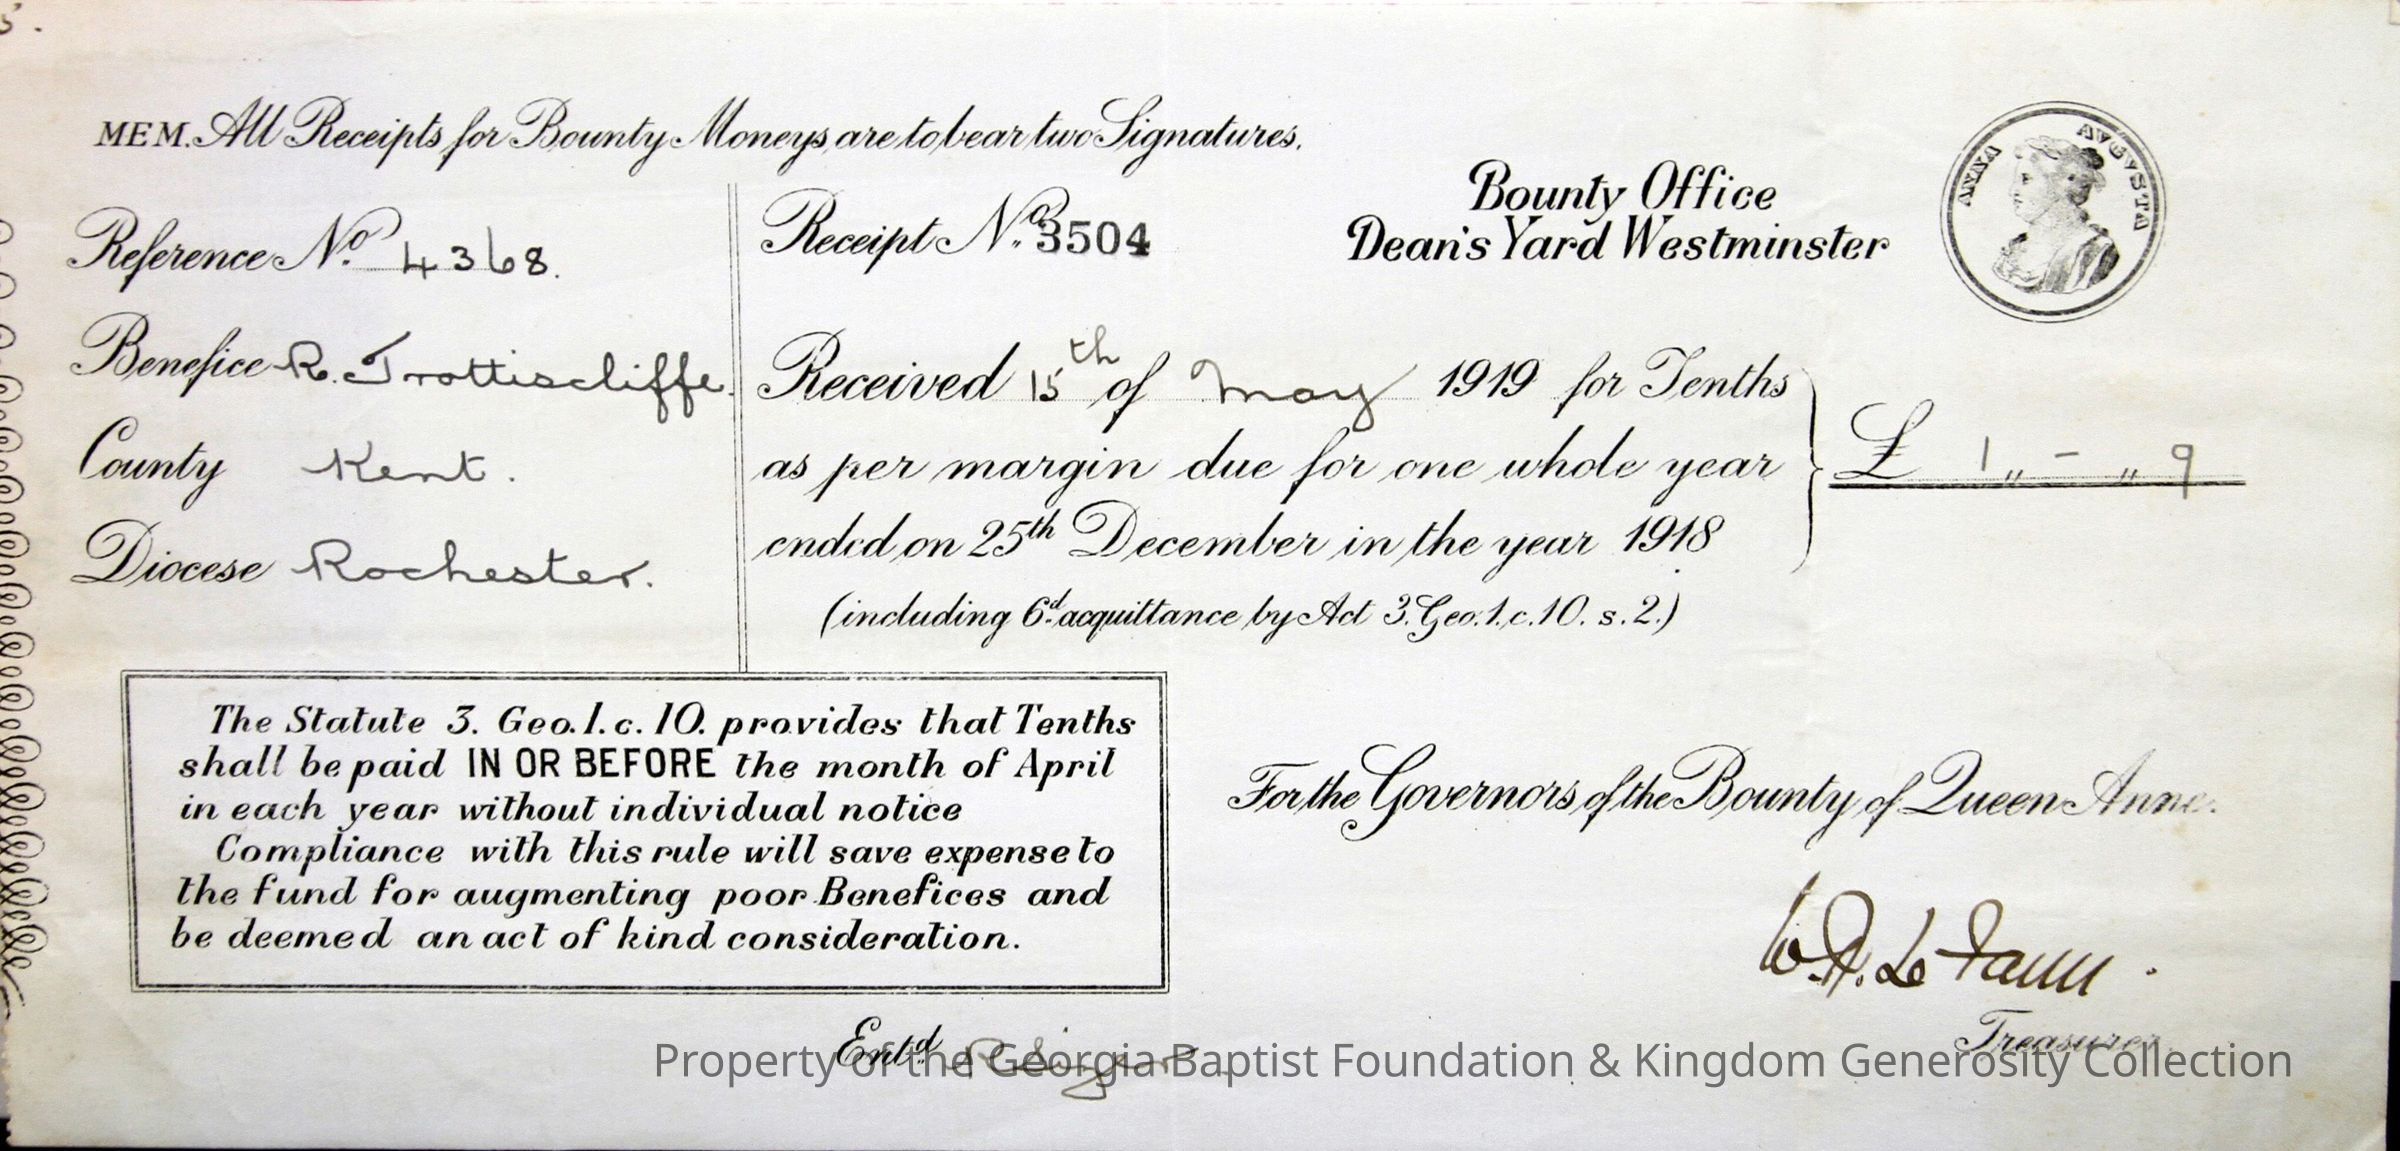 MEM. All Receipts for Bounty Moneys are to bear two Signatures.
Bounty Office
Dean's Yard Westminster
ANNA AVGVSTA
Reference No. 4368.
Benefice R. Trottiscliffe.
County Kent.
Diocese Rochester.
Receipt No. 3504
Received 15th of May 1919 for Tenths
as per margin due for one whole year
ended on 25th December in the year 1918
£ 1 „ - „ 9
(including 6d. acquittance by Act 3. Geo. 1. c. 10. s. 2.)
The Statute 3. Geo. 1. c. 10. provides that Tenths
shall be paid IN OR BEFORE the month of April
in each year without individual notice
Compliance with this rule will save expense to
the fund for augmenting poor Benefices and
be deemed an act of kind consideration.
For the Governors of the Bounty of Queen Anne.
W.R. Le Fanu.
Treasurer.
Entd.
Property of the Georgia Baptist Foundation & Kingdom Generosity Collection